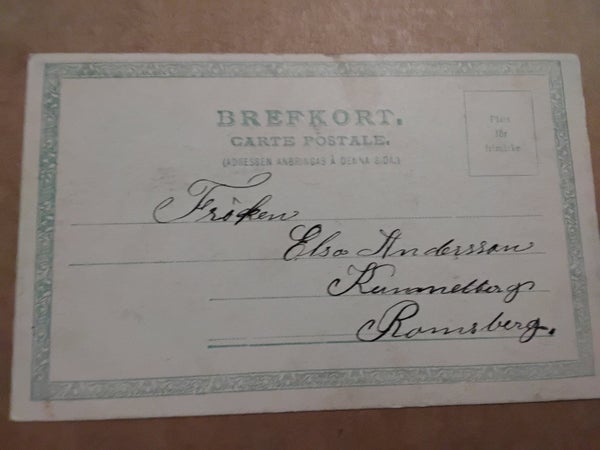 BREFKORT.
CARTE POSTALE.
(ADRESSEN ANBRINGAS Å DENNA SIDA.)
Plats
för
frimärke
Fröken
Elsa Andersson
Kummelberg
Ramsberg.